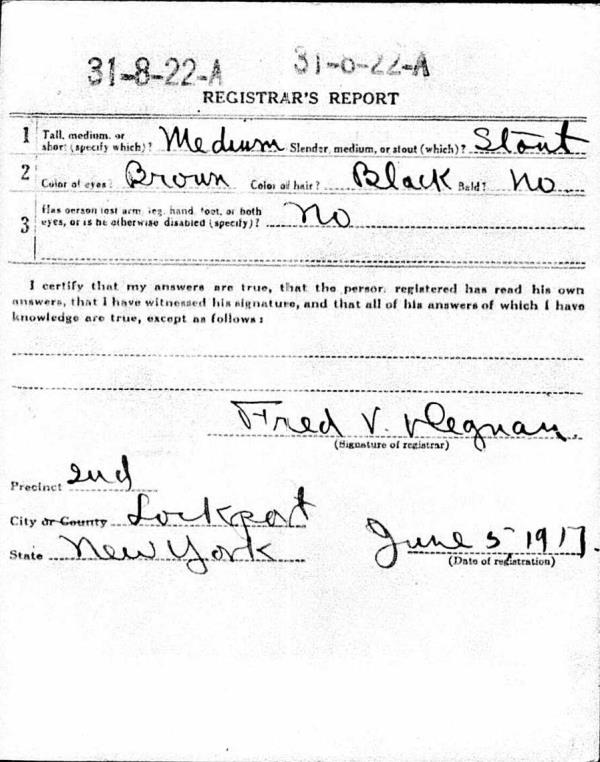 31-8-22-A 31-8-22-A
REGISTRAR'S REPORT
1 Tall, medium, or
short (specify which)? Medium Slender, medium, or stout (which)? Stout
2 Color of eyes? Brown Color of hair? Black Bald? No
3 Has person lost arm, leg, hand, foot, or both
eyes, or is he otherwise disabled (specify)? No
I certify that my answers are true, that the person registered has read his own
answers, that I have witnessed his signature, and that all of his answers of which I have
knowledge are true, except as follows:
Fred V.
(Signature of registrar)
Precinct 2nd
City or County Lockport
State New York
June 5 1917.
(Date of registration)